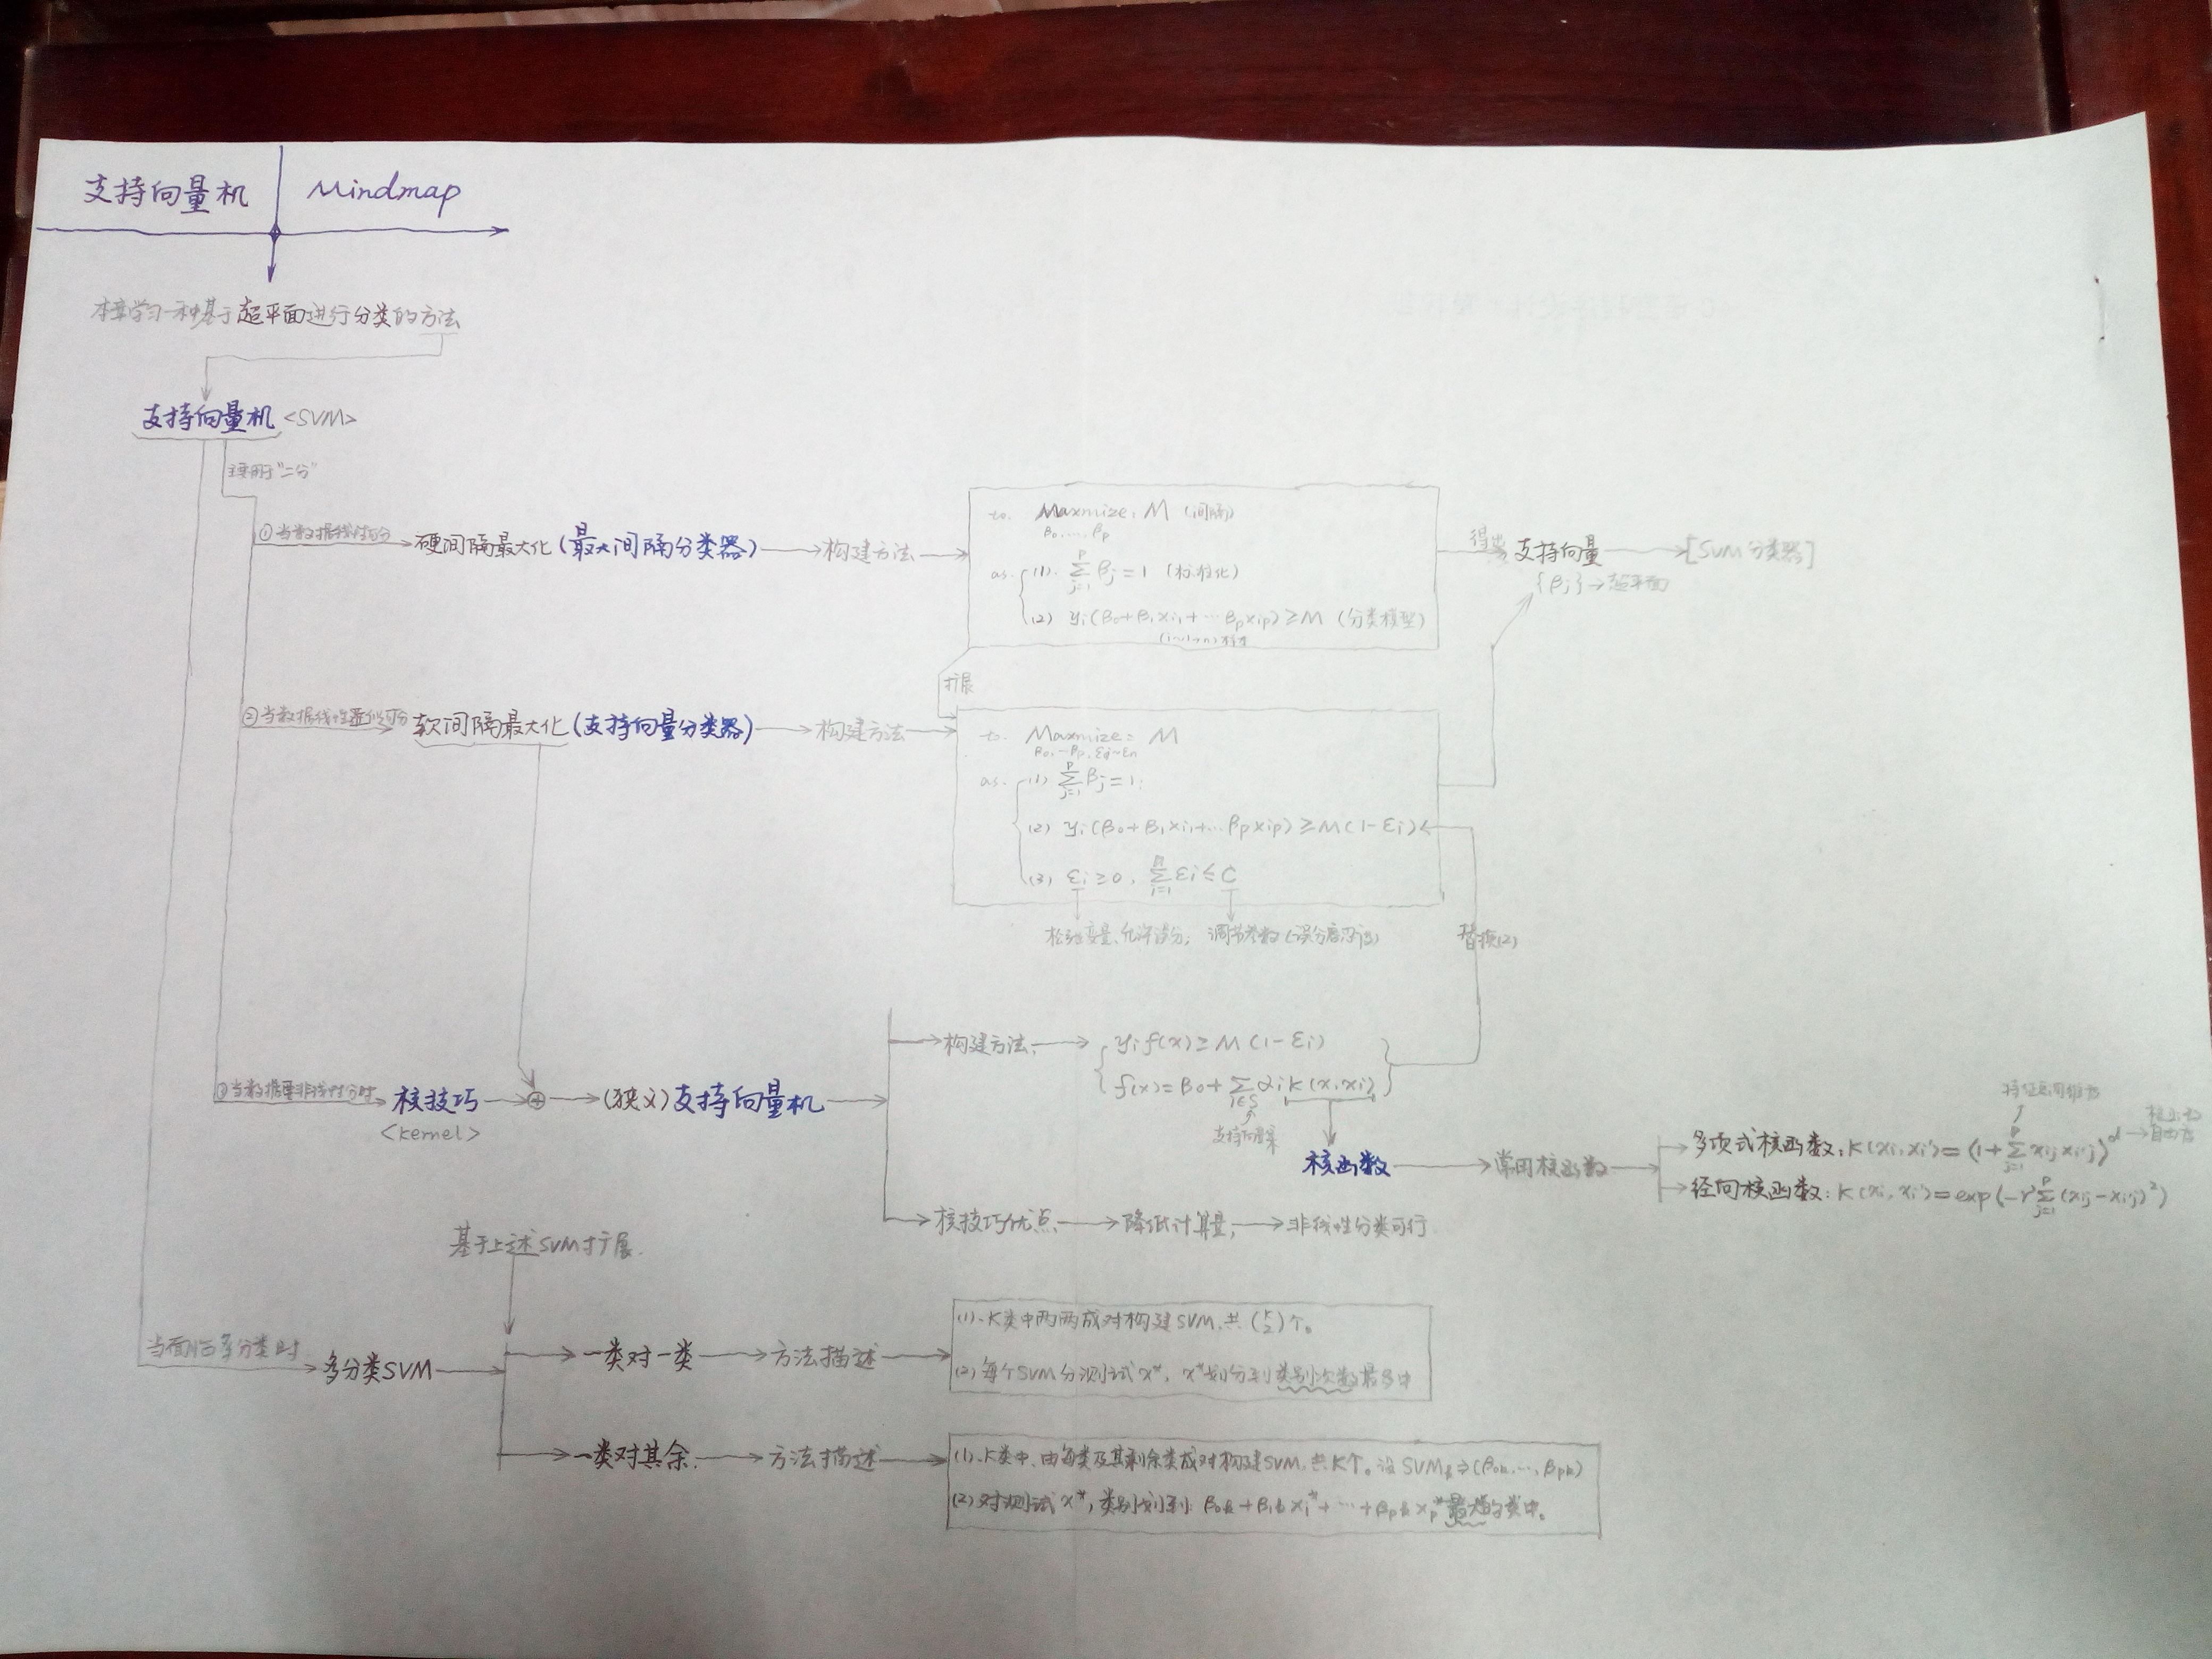 支持向量机 Mindmap
本章学习一种基于超平面进行分类的方法
支持向量机 <SVM>
主要用于"二分"
①当数据线性可分 硬间隔最大化(最大间隔分类器) 构建方法
to. Maxmize: M (间隔)
β0, ..., βp
as. (1). Σ_{j=1}^{p} βj = 1 (标准化)
(2) yi(β0+β1xi1+…βpxip) ≥ M (分类模型)
得出 支持向量 [SVM分类器]
{βj}→超平面
扩展
②当数据线性近似可分 软间隔最大化(支持向量分类器) 构建方法
to. Maxmize: M
β0,…βp, εi~εn
as. (1) Σ_{j=1}^{p} βj = 1.
(2) yi(β0+β1xi1+…βpxip) ≥ M(1-εi)
(3) εi ≥ 0, Σ_{i=1}^{n} εi ≤ C
松弛变量,允许误分; 调节参数(误分容忍度)
替换(2)
③当数据非线性分时 核技巧 ⊕ (狭义)支持向量机
<kernel>
构建方法. yi f(x) ≥ M(1-εi)
f(x) = β0 + Σ_{i∈S} αi k(x,xi)
支持向量集
核函数 常用核函数
特征空间维数
多项式核函数: K(xi,xi') = (1+Σ_{j=1}^{p} xij xi'j)^d
自由度
径向核函数: K(xi,xi') = exp(-γΣ_{j=1}^{p}(xij-xi'j)²)
核技巧优点 降低计算量, 非线性分类可行
基于上述SVM扩展.
当面临多分类时 多分类SVM
一类对一类 方法描述
(1). K类中两两成对构建SVM, 共(K 2)个。
(2) 每个SVM分测试x*, x*划分到类别次数最多中
一类对其余. 方法描述
(1). K类中,由每类及其剩余类成对构建SVM, 共K个。设SVMk⇒(β0k,…,βpk)
(2) 对测试x*, 类别划到: β0k+β1kx1*+…+βpkxp*最大的类中。